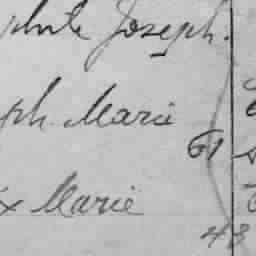 phile Joseph.
ph Marie
61
x Marie
43